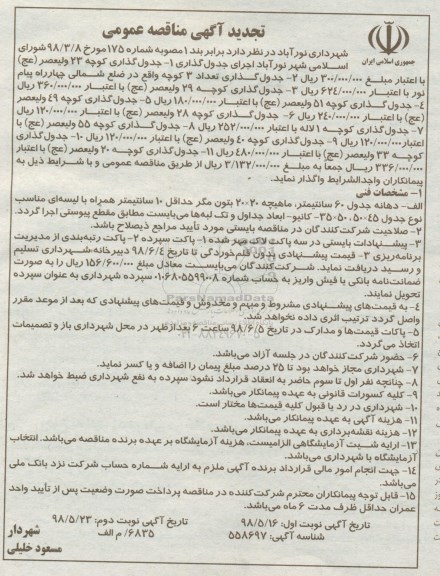 تجدید آگهی مناقصه عمومی
جمهوری اسلامی ایران
شهرداری نورآباد در نظر دارد برابر بند ۱ مصوبه شماره ۱۷۵ مورخ ۹۸/۳/۸ شورای
اسلامی شهر نورآباد اجرای جدول‌گذاری ۱- جدول‌گذاری کوچه ۲۳ ولیعصر (عج)
با اعتبار مبلغ ۳۰۰/۰۰۰/۰۰۰ ریال ۲- جدول‌گذاری تعداد ۳ کوچه واقع در ضلع شمالی چهارراه پیام
نور با اعتبار ۶۲۴/۰۰۰/۰۰۰ ریال ۳- جدول‌گذاری کوچه ۲۹ ولیعصر (عج) با اعتبار ۳۶۰/۰۰۰/۰۰۰ ریال
۴- جدول‌گذاری کوچه ۵۱ ولیعصر (عج) با اعتبار ۱۸۰/۰۰۰/۰۰۰ ریال ۵- جدول‌گذاری کوچه ۴۹ ولیعصر
(عج) با اعتبار ۲۴۰/۰۰۰/۰۰۰ ریال ۶- جدول‌گذاری کوچه ۲۸ ولیعصر (عج) با اعتبار ۱۲۰/۰۰۰/۰۰۰ ریال
۷- جدول‌گذاری کوچه ۱ لاله با اعتبار ۲۵۲/۰۰۰/۰۰۰ ریال ۸- جدول‌گذاری کوچه ۵۵ ولیعصر (عج) با
اعتبار ۱۲۰/۰۰۰/۰۰۰ ریال ۹- جدول‌گذاری کوچه ۴۰ ولیعصر (عج) با اعتبار ۱۲۰/۰۰۰/۰۰۰ ریال ۱۰- جدول‌گذاری
کوچه ۳۳ ولیعصر (عج) با اعتبار ۴۸۰/۰۰۰/۰۰۰ ریال ۱۱- جدول‌گذاری کوچه ۲۰ ولیعصر (عج) با اعتبار
۳۳۶/۰۰۰/۰۰۰ ریال جمعا به مبلغ ۳/۱۳۲/۰۰۰/۰۰۰ ریال از طریق مناقصه عمومی و با شرایط ذیل به
پیمانکاران واجدالشرایط واگذار نماید.
۱- مشخصات فنی
الف- دهانه جدول ۶۰ سانتیمتر، ماهیچه ۲۰*۲۰ بتون مگر حداقل ۱۰ سانتیمتر همراه با لیسه‌ای مناسب
نوع جدول ۴۵-۵۰-۵۰-۳۵- کانیو- ابعاد جداول و تک لبه‌ها می‌بایست مطابق مقطع پیوستی اجرا گردد.
۲- صلاحیت شرکت‌کنندگان در مناقصه بایستی مورد تأیید مراجع ذیصلاح باشد.
۳- پیشنهادات بایستی در سه پاکت لاک و مهر شده ۱- پاکت سپرده ۲- پاکت رتبه‌بندی از مدیریت
برنامه‌ریزی ۳- قیمت پیشنهادی بدون قلم‌خوردگی تا تاریخ ۹۸/۶/۴ دبیرخانه شهرداری تسلیم
و رسید دریافت نماید. شرکت‌کنندگان می‌بایست معادل مبلغ ۱۵۶/۶۰۰/۰۰۰ ریال را به صورت
ضمانت‌نامه بانکی یا فیش واریز به حساب شماره ۰۱۰۶۸۰۵۵۹۹۰۰۸ سپرده شهرداری به عنوان سپرده
تحویل نمایند.
۴- به قیمت‌های پیشنهادی مشروط و مبهم و مخدوش و قیمت‌های پیشنهادی که بعد از موعد مقرر
واصل گردد ترتیب اثری داده نخواهد شد.
۵- پاکات قیمت‌ها و مدارک در تاریخ ۹۸/۶/۵ ساعت ۶ بعدازظهر در محل شهرداری باز و تصمیمات
اتخاذ می‌گردد.
۶- حضور شرکت‌کنندگان در جلسه آزاد می‌باشد.
۷- شهرداری مجاز خواهد بود تا ۲۵ درصد مبلغ پیمان را اضافه و یا کسر نماید.
۸- چنانچه نفر اول تا سوم حاضر به انعقاد قرارداد نشود سپرده به نفع شهرداری ضبط خواهد شد.
۹- کلیه کسورات قانونی به عهده پیمانکار می‌باشد.
۱۰- شهرداری در رد یا قبول کلیه قیمت‌ها مختار است.
۱۱- هزینه آگهی به عهده پیمانکار می‌باشد.
۱۲- هزینه نقشه‌برداری به عهده پیمانکار می‌باشد.
۱۳- ارایه شیت آزمایشگاهی الزامیست، هزینه آزمایشگاه بر عهده برنده مناقصه می‌باشد. انتخاب
آزمایشگاه با شهرداری می‌باشد.
۱۴- جهت انجام امور مالی قرارداد برنده آگهی ملزم به ارایه شماره حساب شرکت نزد بانک ملی
می‌باشد.
۱۵- قابل توجه پیمانکاران محترم شرکت‌کننده در مناقصه پرداخت صورت وضعیت پس از تأیید واحد
عمران حداقل ظرف مدت ۶ ماه می‌باشد.
تاریخ آگهی نوبت اول: ۹۸/۵/۱۶ تاریخ آگهی نوبت دوم: ۹۸/۵/۲۳
شناسه آگهی: ۵۵۸۶۹۷ ۶۸۳۵/ م الف
شهردار
مسعود خلیلی